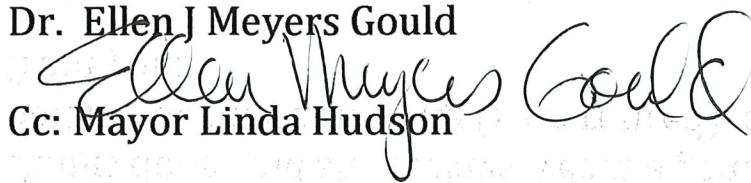 Dr. Ellen J Meyers Gould
Ellen Meyers Gould
Cc: Mayor Linda Hudson